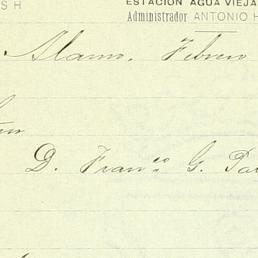 S H
ESTACIÓN AGUA VIEJA
Administrador ANTONIO H
Alamo, Febrero
D. Fran.co G. Pa